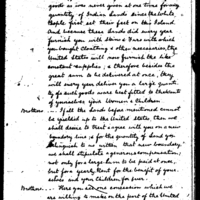 goods as was never given at one time for any
quantity of Indian lands since the white
people first set their foot on this Island.
And because these lands did every year
furnish you with skins & furs with which
you bought cloathing & other necessaries, the
United States will now furnish the like
constant supplies; & therefore besides the
great sum to be delivered at once, they
will every year deliver you a large quantity
of such goods as are best fitted to the wants
of yourselves your Women & children.
Brothers. If all the lands before mentioned cannot
be yielded up to the United States, then we
shall desire to treat & agree with you on a new
boundary line & for the quantity of land you
relinquish to us within that new boundary,
we shall stipulate a generous compensation,
not only for a large sum to be paid at once,
but for a yearly Rent for the benefit of yourselves
and your children for ever.
Brothers. Here you see one concession which we
are willing to make on the part of the United